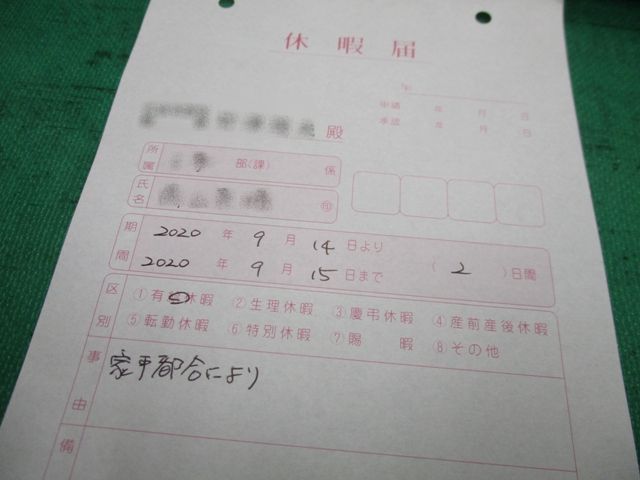 休暇届
№
申請 年 月 日
承認 年 月 日
殿
所属 部(課) 係
氏名 ㊞
期間 2020 年 9 月 14 日より
2020 年 9 月 15 日まで ( 2 )日間
区別 ①有給休暇 ②生理休暇 ③慶弔休暇 ④産前産後休暇
⑤転勤休暇 ⑥特別休暇 ⑦賜暇 ⑧その他
事由 家事都合により
備